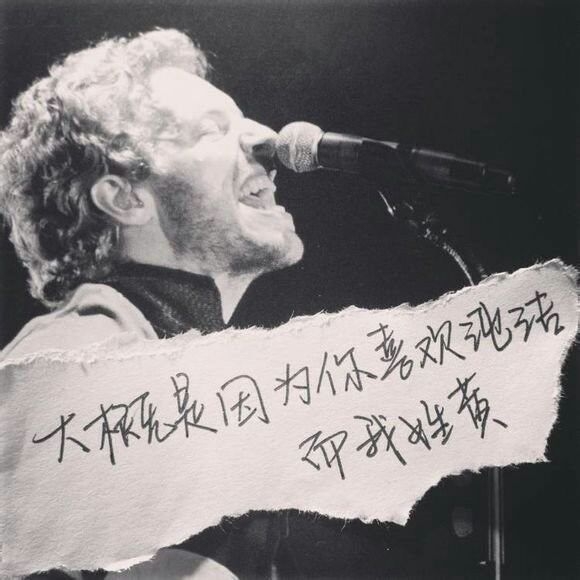 大概是因为你喜欢纯洁
而我姓黄